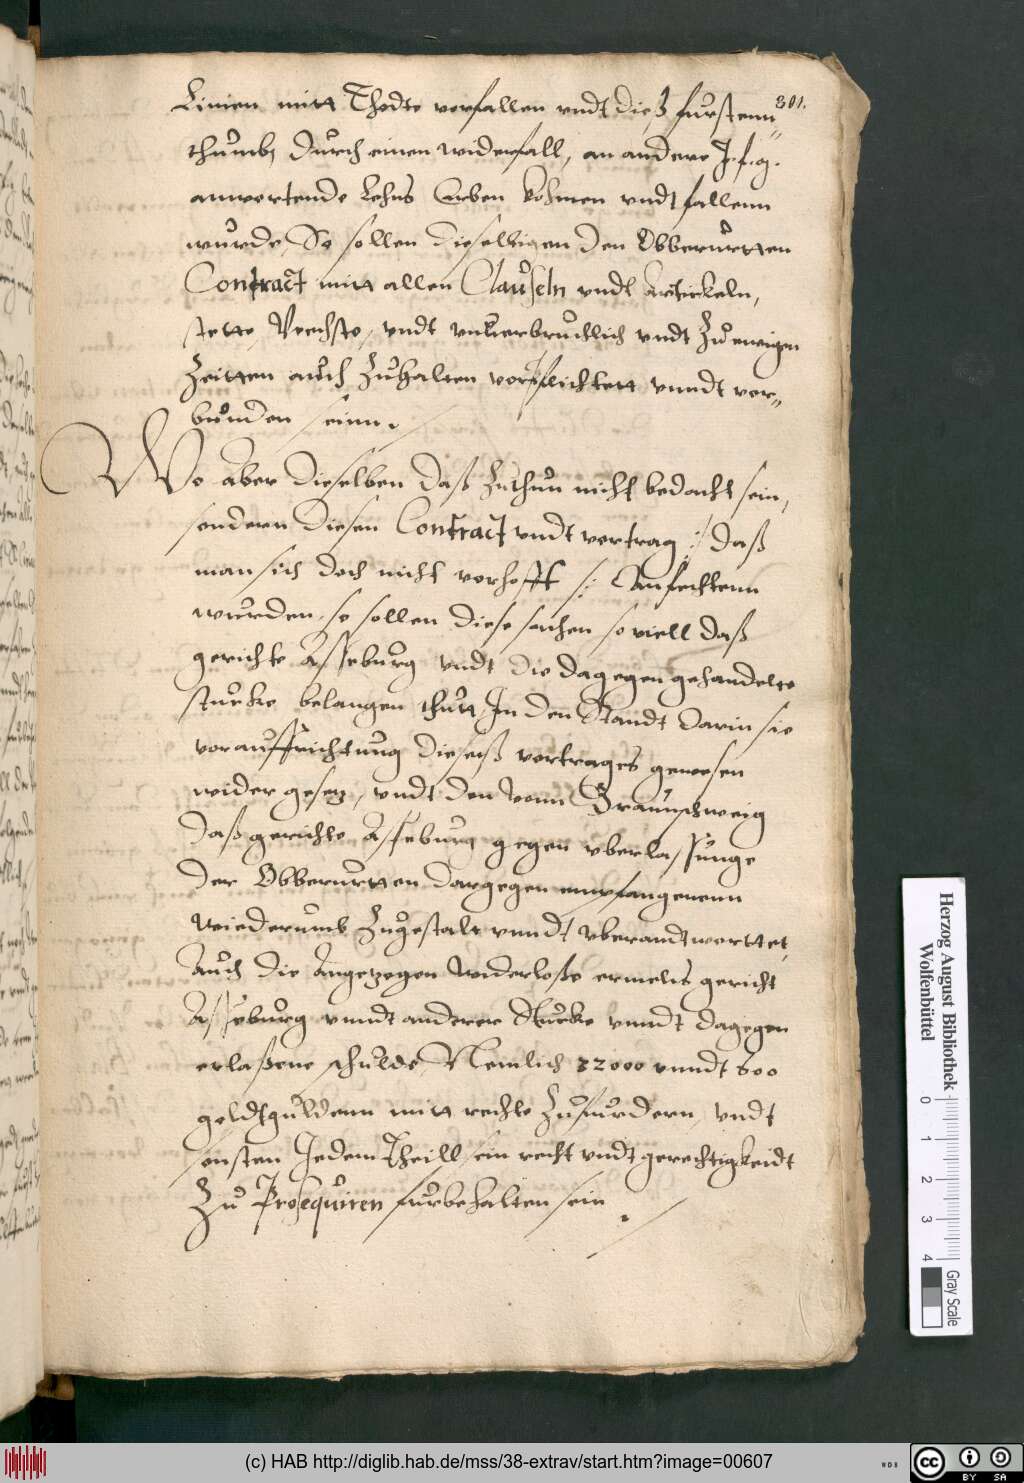 301.
Linien mitt Thodte verfallen vndt dieß furstenn„
thumb, durch einen widerfall, an andere J. f. g.
anwortende Lehns Erben kohmen vndt fallenn
wurde, So sollen dieselbigen den Obberurtten
Contract mitt allen Clauseln vndt Artickeln,
stette, Veehste, vndt vnuerbruchlich vndt Zu ewigen
Zeitten auch Zuhalten vorpflichtett vnndt ver„
bunden seinn.
Wo aber dieselben daß Zuthun nicht bedacht sein,
sondern diesen Contract vndt vertrag /: daß
man sich doch nicht verhofft :/ Anfechtenn
wurden, so sollen diese sachen so viell daß
gerichte Asseburg vndt die dagegen gehandelte
stucke belangen thutt Jn den Standt darin sie
vor auffrichtung dieseß vertrages gewesen
wider gesetz, vndt den vonn Braunschweig
daß gerichte Asseburg gegen vberlassunge
der Obberurtten dargegen empfangenenn
Wiederumb Zugestalt vnndt vberandtworttet,
Auch die Angetzogen Widerloße ermelts gericht
Asseburg vnndt anderer Stucke vnndt dagegen
erlaßene schulde, Nemlich 32000 vnndt 600
goldtguldenn mitt rechte Zufurdern, vndt
sonsten Jedem Theill sein recht vndt gerechtigkeidt
Zu Prosequiren furbehalten sein.
Herzog August Bibliothek
Wolfenbüttel
0 1 2 3 4
Gray Scale
(c) HAB http://diglib.hab.de/mss/38-extrav/start.htm?image=00607
WDB
cc BY SA